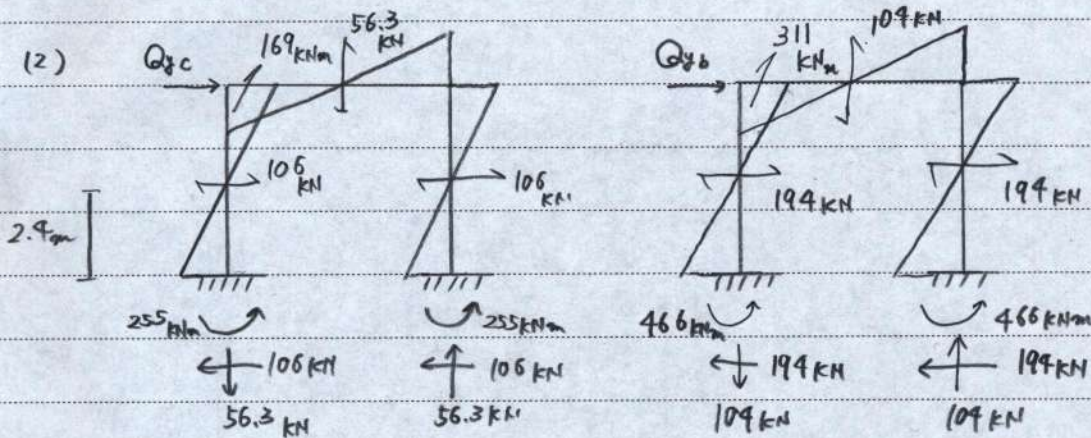 (2)
Qyc 169 kNm 56.3 kN
106 kN
106 kN
2.4m
255 kNm 255 kNm
106 kN 106 kN
56.3 kN 56.3 kN
Qyb 311 kNm 104 kN
194 kN
194 kN
466 kNm 466 kNm
194 kN 194 kN
104 kN 104 kN